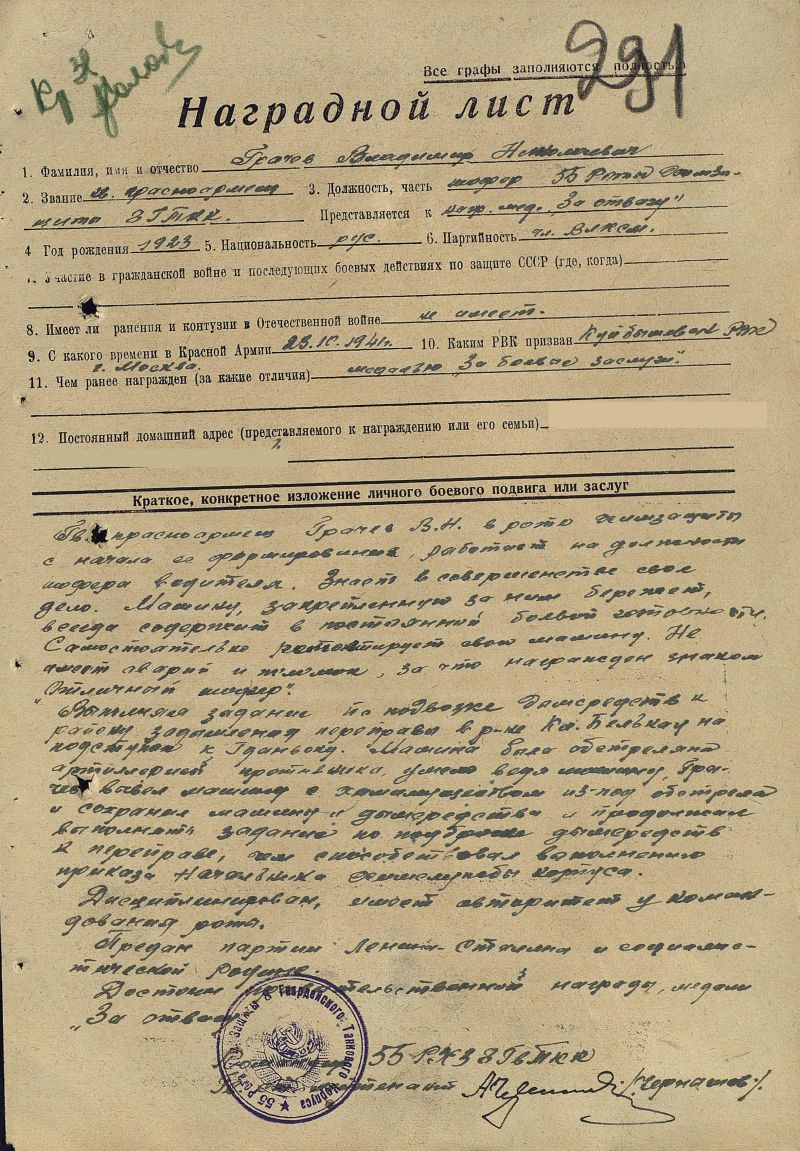 291
Кр Зн
Все графы заполняются полностью
Наградной лист
1. Фамилия, имя и отчество Грачев Владимир Николаевич
2. Звание гв. красноармеец 3. Должность, часть шофер 55 Роты Химза-
щиты 8ГТКК. Представляется к нагр. мед. „За отвагу"
4 Год рождения 1923 5. Национальность рус. 6. Партийность чл. ВЛКСМ.
7. Участие в гражданской войне и последующих боевых действиях по защите СССР (где, когда)
8. Имеет ли ранения и контузии в Отечественной войне не имеет.
9. С какого времени в Красной Армии 23.10.1941г. 10. Каким РВК призван Куйбышевск РВК
г. Москва.
11. Чем ранее награжден (за какие отличия) медалью „За боевые заслуги".
12. Постоянный домашний адрес (представляемого к награждению или его семьи)
Краткое, конкретное изложение личного боевого подвига или заслуг
Гв. красноармеец Грачев В.Н. в роте химзащиты
с начала ее формирования, работает на должности
шофера водителя. Знает в совершенстве свое
дело. Машину, закрепленную за ним бережет,
всегда содержит в постоянной боевой готовности.
Самостоятельно ремонтирует свою машину. Не
имеет аварий и поломок, за что награжден знаком
„Отличный шофер".
Выполняя задание по подвозке дымсредств к
району задымления переправа в р-не Кл. Белькау на
подступах к Гданьску. Машина была обстреляна
артиллерией противника, умело ведя машину, Гра-
чев вывел машину с из-под обстрела
и сохранил машину и дымсредства и продолжал
выполнять задание по подброске дымсредств
к переправе, чем способствовал выполнению
приказа Начальника химслужбы корпуса.
Дисциплинирован, имеет авторитет у коман-
дования роты.
Предан партии Ленина-Сталина и социалис-
тической Родине.
Достоин правительственной награды, медали
„За отвагу
Командир 55 РХЗ 8ГвТКК
лейтенант /Чернышов/.
55 Рота Хим. Защиты 8 Гвардейского Танкового Корпуса